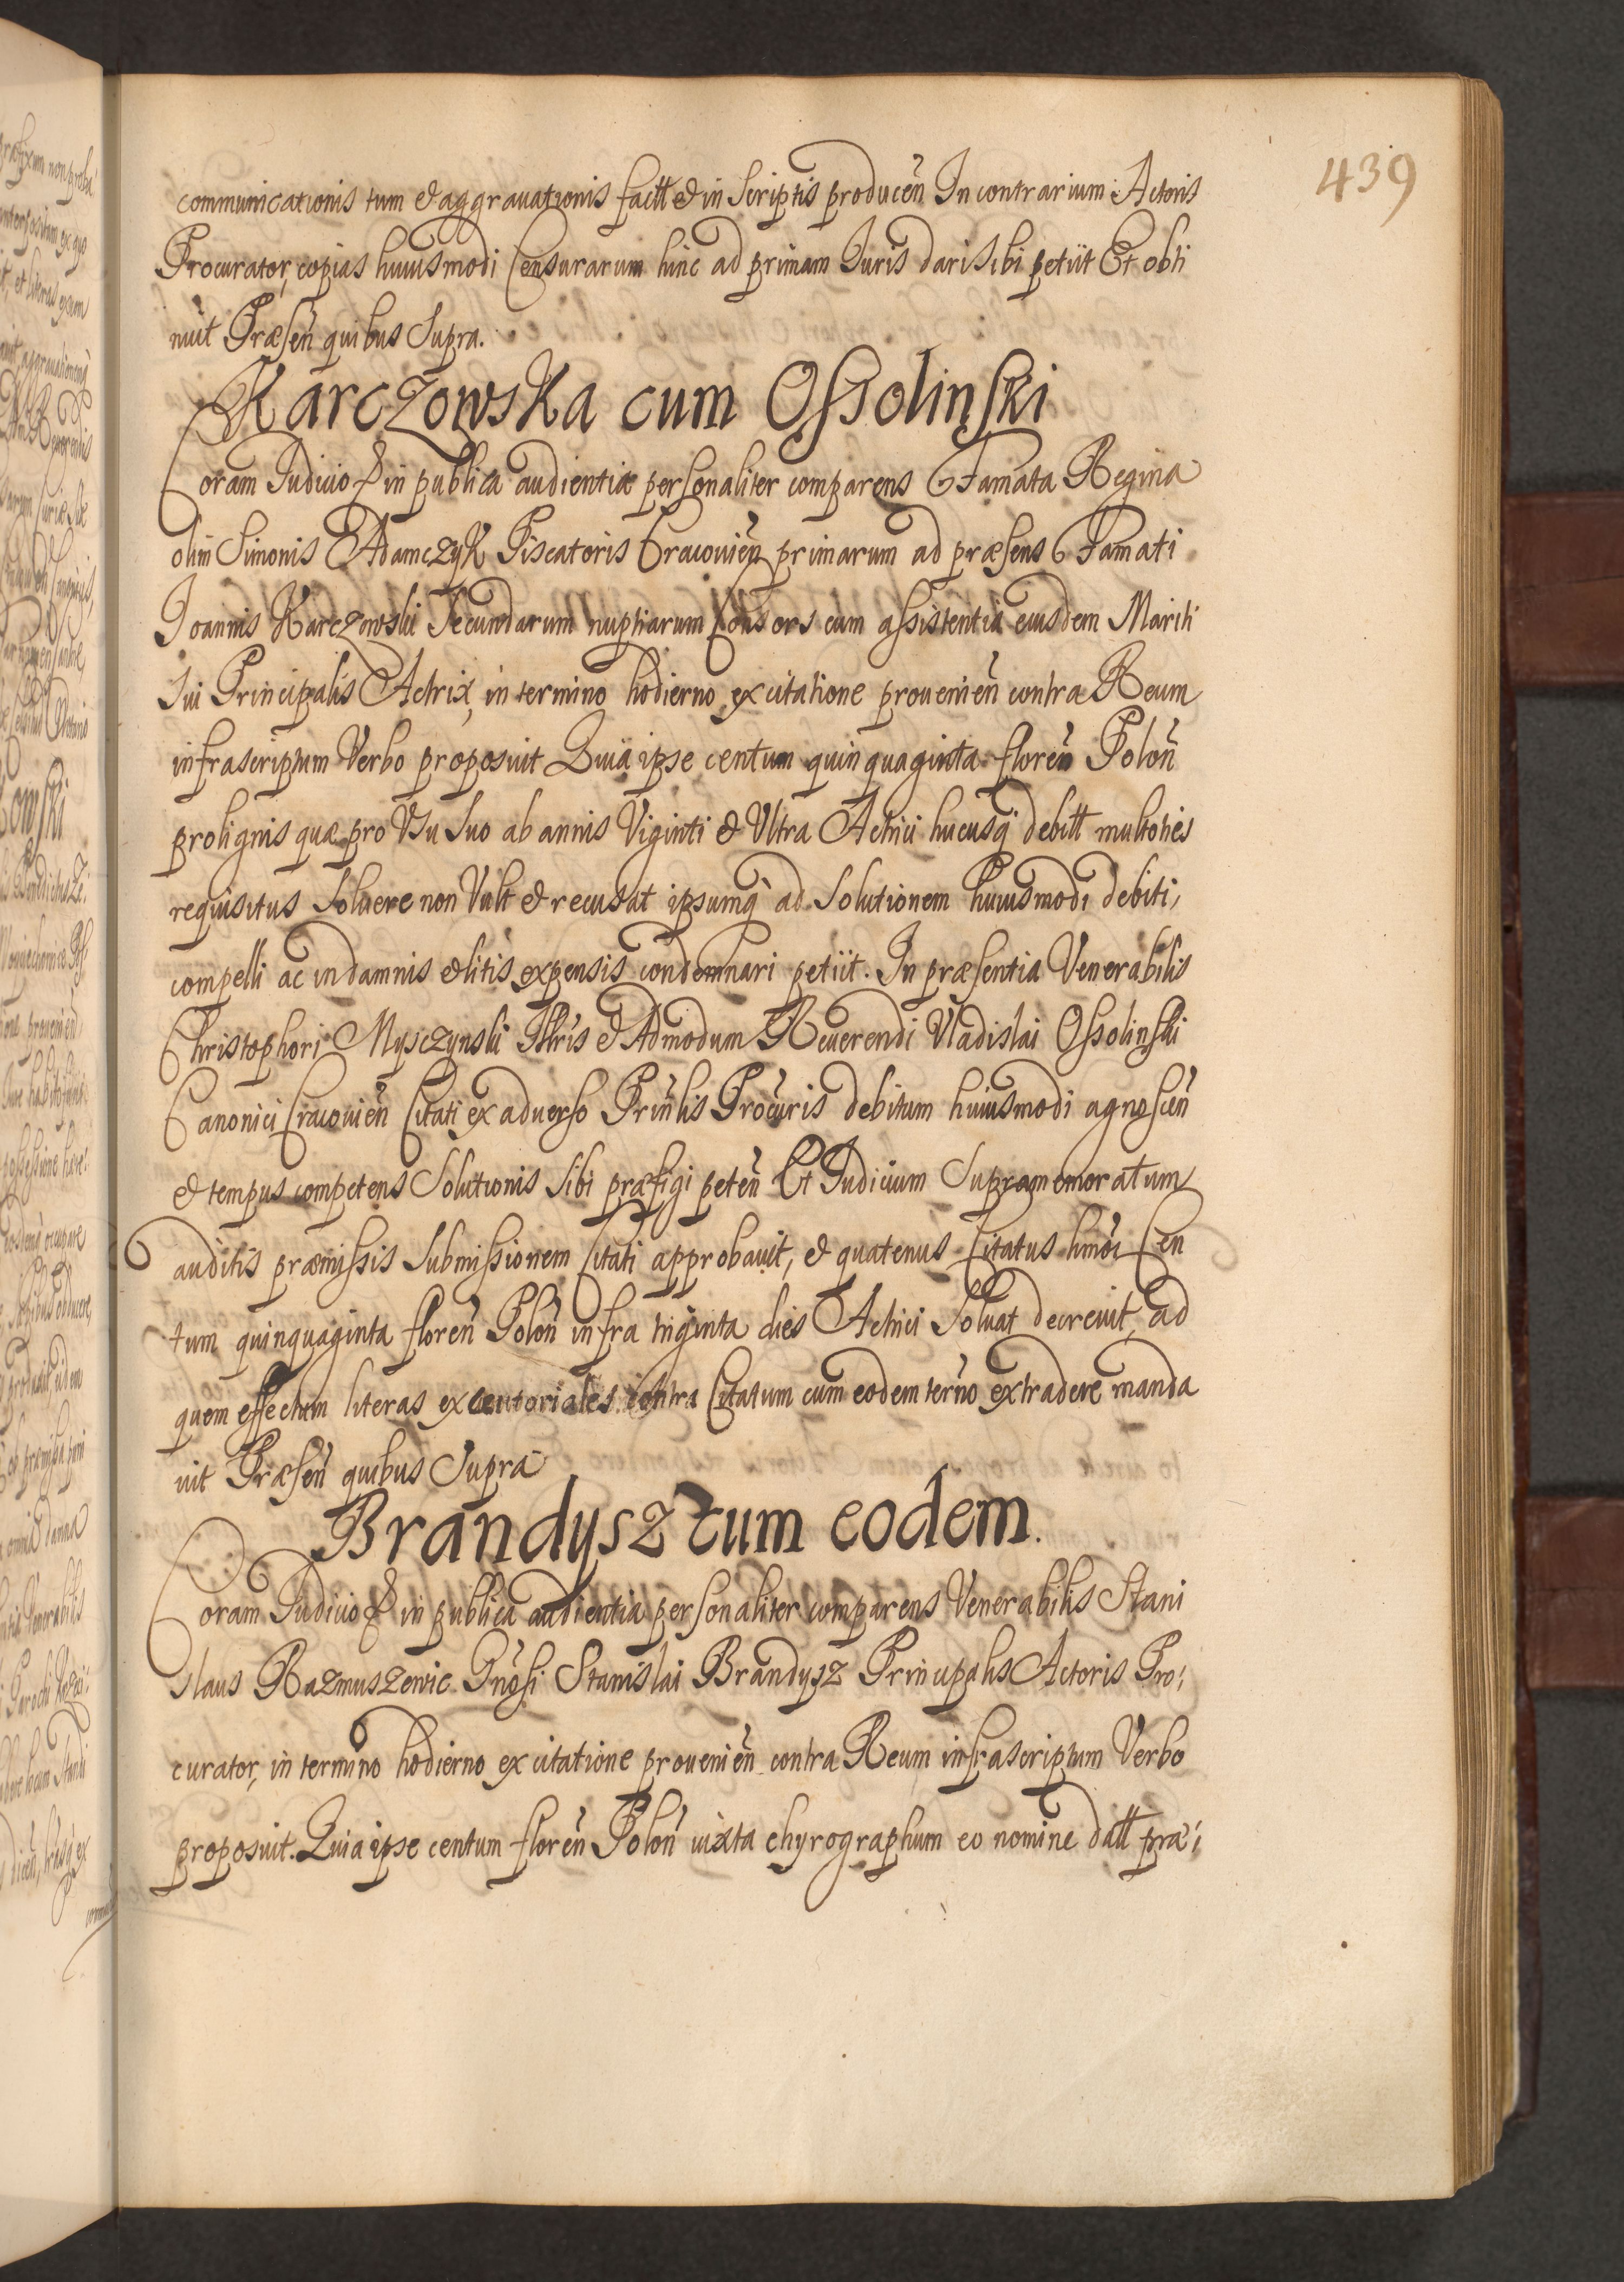 439
communicationis tum et aggravationis factt et in Scriptis producen̄ In contrarium Actoris
Procurator, copias huiusmodi Censurarum hinc ad primam Iuris dari Sibi petiit Et obti
nuit Præsen̄ quibus Supra.
Karczowska cum Ossolinski
Coram Iudicio & in publica audientia personaliter comparens Famata Regina
olim Simonis Adamczyk Piscatoris Cracovien̄ primarum ad præsens Famati
Ioannis Karczowski Secundarum nuptiarum Consors cum assistentia eiusdem Mariti
Sui Principalis Actrix, in termino hodierno ex citatione provenien̄ contra Reum
infrascriptum Verbo proposuit Quia ipse centum quinquaginta floren̄ Polon̄
pro lignis quæ pro Usu Suo ab annis Viginti & Ultra Actrici hucusq̢ debitt multoties
requisitus Solvere non Vult & recusat ipsumq̢ ad Solutionem huiusmodi debiti,
compelli ac in damnis & litis expensis condemnari petiit. In præsentia Venerabilis
Christophori Mysczynski Illris & Admodum Reverendi Vladislai Ossolinski
Canonici Cracovien̄ Citati ex adverso Prin̄lis Procuris debitum huiusmodi agnoscen̄
& tempus competens Solutionis Sibi præfigi peten̄ Et Iudicium Supramemoratum
auditis præmissis Submissionem Citati approbavit, & quatenus Citatus hmōi Cen
tum quinquaginta floren̄ Polon̄ infra triginta dies Actrici Solvat decrevit, ad
quem effectum literas executoriales contra Citatum cum eodem terno extradere manda
vit Præsen̄ quibus Supra
Brandysz cum eodem.
Coram Iudicio & in publica audientia personaliter comparens Venerabilis Stani
slaus Razmuszewic Gn̄osi Stanislai Brandysz Principalis Actoris Pro:
curator, in termino hodierno ex citatione provenien̄ contra Reum infrascriptum Verbo
proposuit. Quia ipse centum floren̄ Polon̄ iuxta chyrographum eo nomine datt præ: